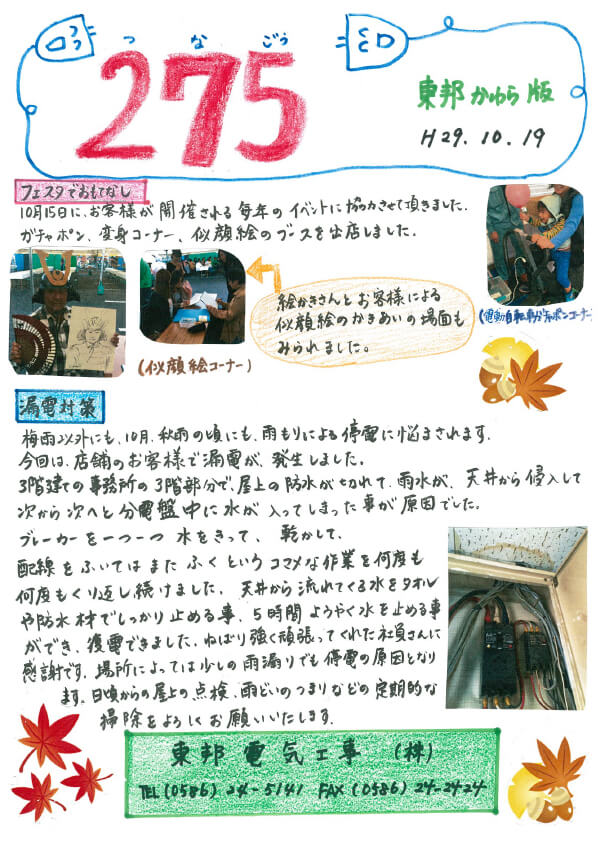 つなごう
275
東邦かわら版
H29.10.19
フェスタでおもてなし
10月15日に、お客様が開催される毎年のイベントに協力させて頂きました。
ガチャポン、変身コーナー、似顔絵のブースを出店しました。
絵かきさんとお客様による
似顔絵のかきあいの場面も
みられました。
(電動自転車ガチャポンコーナー)
(似顔絵コーナー)
漏電対策
梅雨以外にも、10月、秋雨の頃にも、雨もりによる停電に悩まされます。
今回は、店舗のお客様で漏電が、発生しました。
3階建ての事務所の3階部分で、屋上の防水が切れて、雨水が、天井から侵入して
次から次へと分電盤中に水が入ってしまった事が原因でした。
ブレーカーを一つ一つ水をきって、乾かして、
配線をふいてはまたふくというコマメな作業を何度も
何度もくり返し続けました。天井から流れてくる水をタオル
や防水材でしっかり止める事、5時間ようやく水を止める事
ができ、復電できました。ねばり強く頑張ってくれた社員さんに
感謝です。場所によっては少しの雨漏りでも停電の原因となり
ます。日頃からの屋上の点検、雨どいのつまりなどの定期的な
掃除をよろしくお願いいたします。
東邦電気工事(株)
TEL(0586)24-5141 FAX(0586)24-2424